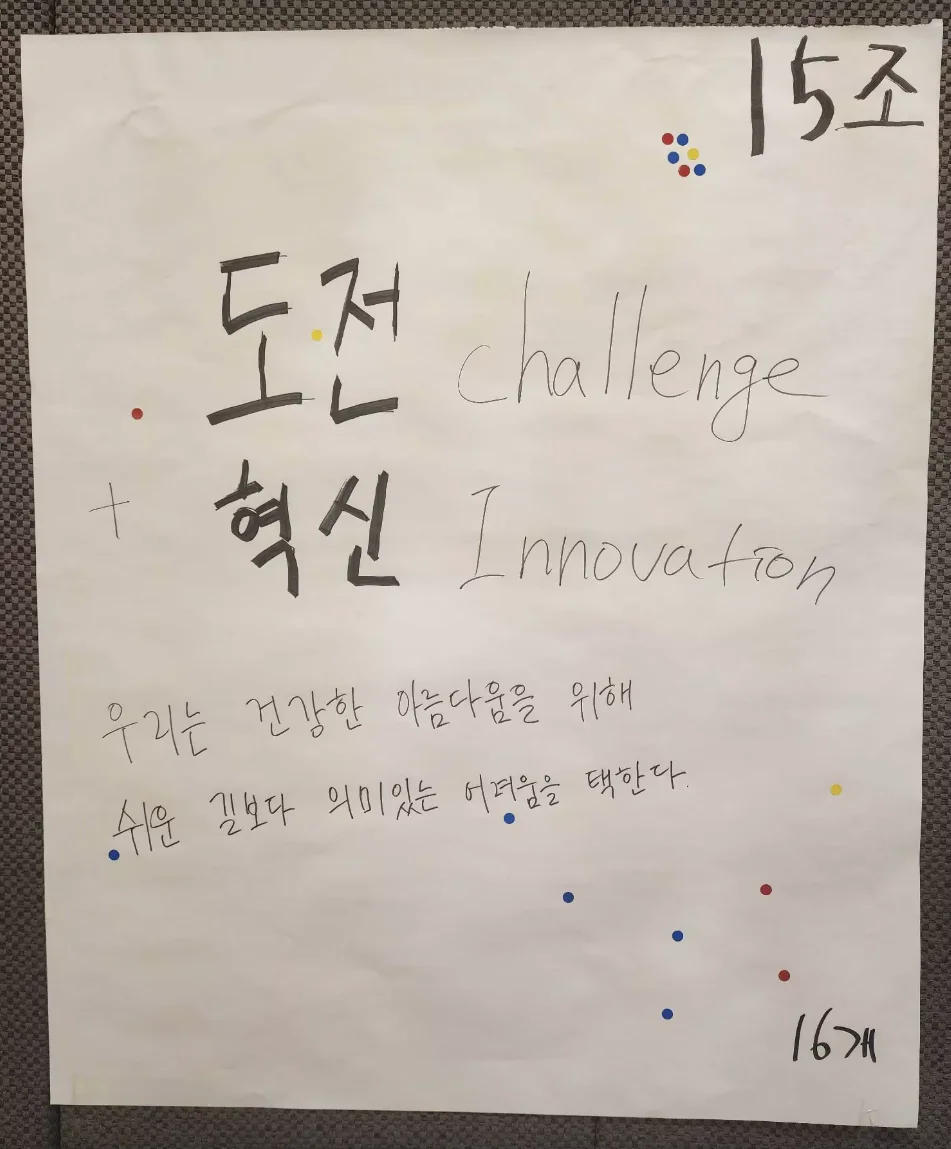 15조
도전 challenge
+ 혁신 Innovation
우리는 건강한 아름다움을 위해
쉬운 길보다 의미있는 어려움을 택한다.
16개